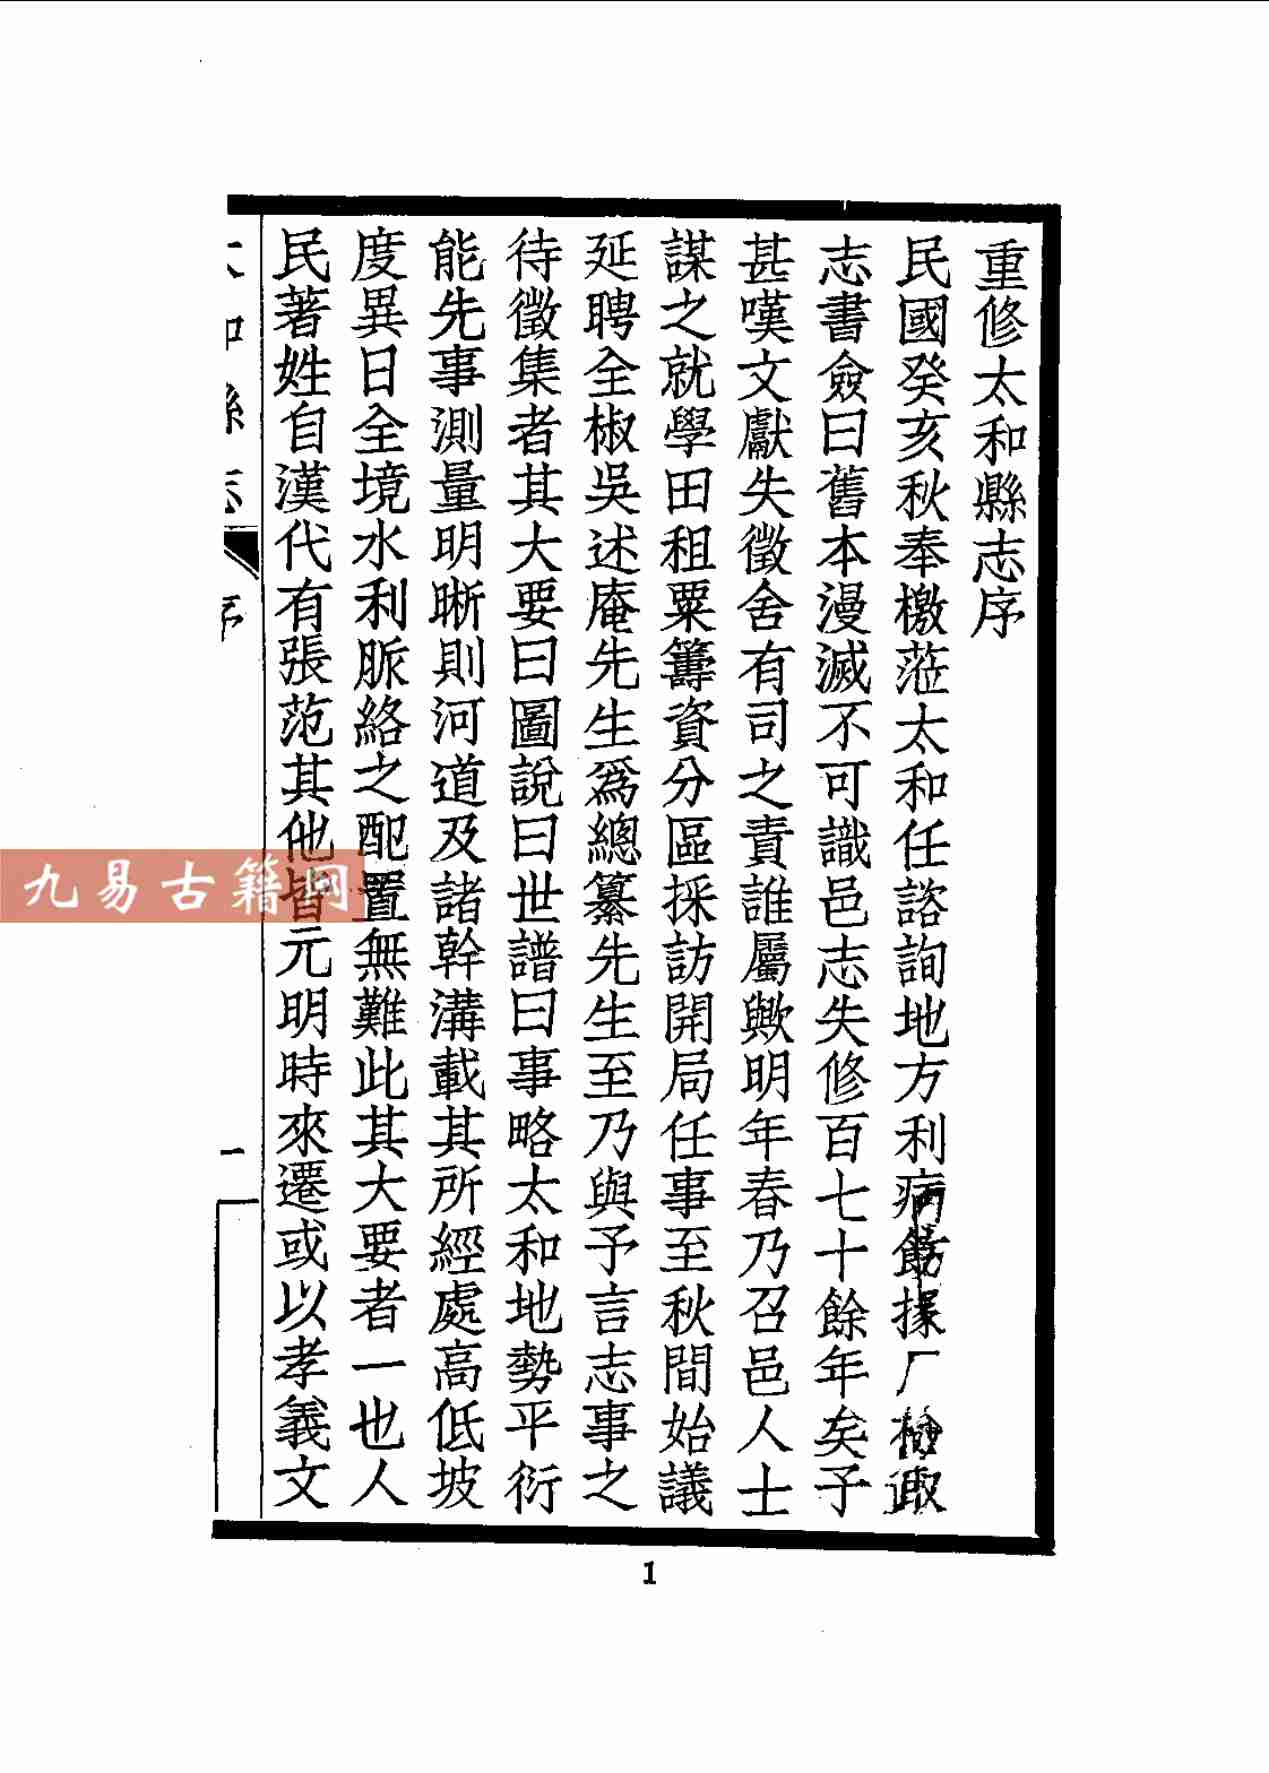 重修太和縣志序
民國癸亥秋奉檄蒞太和任諮詢地方利病飭掾厂檢
志書僉曰舊本漫滅不可識邑志失修百七十餘年矣予
甚嘆文獻失徵舍有司之責誰屬歟明年春乃召邑人士
謀之就學田租粟籌資分區採訪開局任事至秋間始議
延聘全椒吳述庵先生爲總纂先生至乃與予言志事之
待徵集者其大要曰圖說曰世譜曰事略太和地勢平衍
能先事測量明晰則河道及諸幹溝載其所經處高低坡
度異日全境水利脈絡之配置無難此其大要者一也人
民著姓自漢代有張范其他皆元明時來遷或以孝義文
序
一
1
九易古籍网